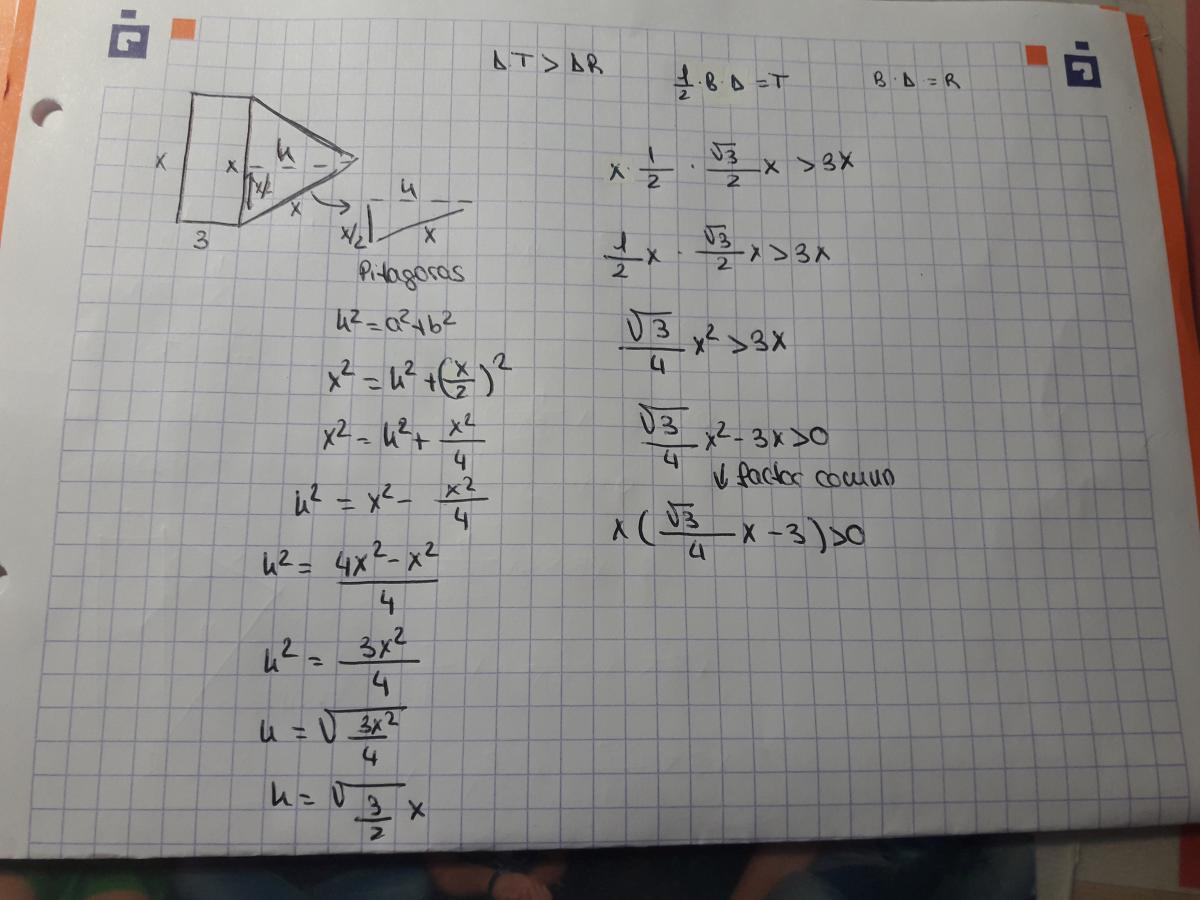 ΔT > ΔR
1/2 · B · Δ = T
B · Δ = R
x
x
h
x/2
x
3
h
x/2
x
Pitagoras
h² = a² + b²
x² = h² + (x/2)²
x² = h² + x²/4
h² = x² - x²/4
h² = (4x² - x²)/4
h² = 3x²/4
h = √(3x²/4)
h = √(3/2) x
x · 1/2 · √3/2 x > 3x
1/2 x · √3/2 x > 3x
√3/4 x² > 3x
√3/4 x² - 3x > 0
↓ factor comun
x (√3/4 x - 3) > 0